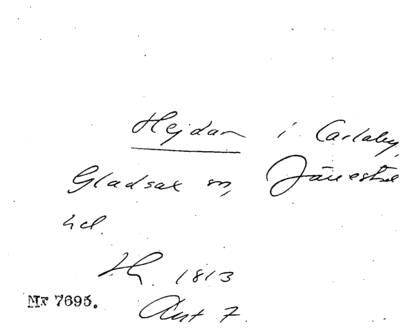 Hejdan i Carlaby,
Gladsax sn, Järrestad
hd.
1813
Akt 7.
Mr 7695.